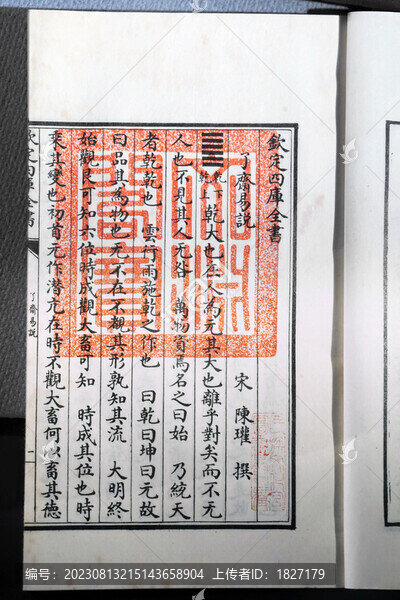 欽定四庫全書
了齋易說
宋 陳瓘 撰
乾下
乾上
乾大也在人為元其大也離乎對矣而不元
人也不見其人无咎 萬物資焉名之曰始 乃統天
者乾乾也 雲行雨施乾之作也 曰乾曰坤曰元故
曰品其為物也无不在不觀其形孰知其流 大明終
始觀艮可知六位時成觀大畜可知 時成其位也時
乘其變也初首元作潛亢在時不觀大畜何以畜其德
欽定四庫全書
了齋易說
一
编号:20230813215143658904 上传者ID:1827179